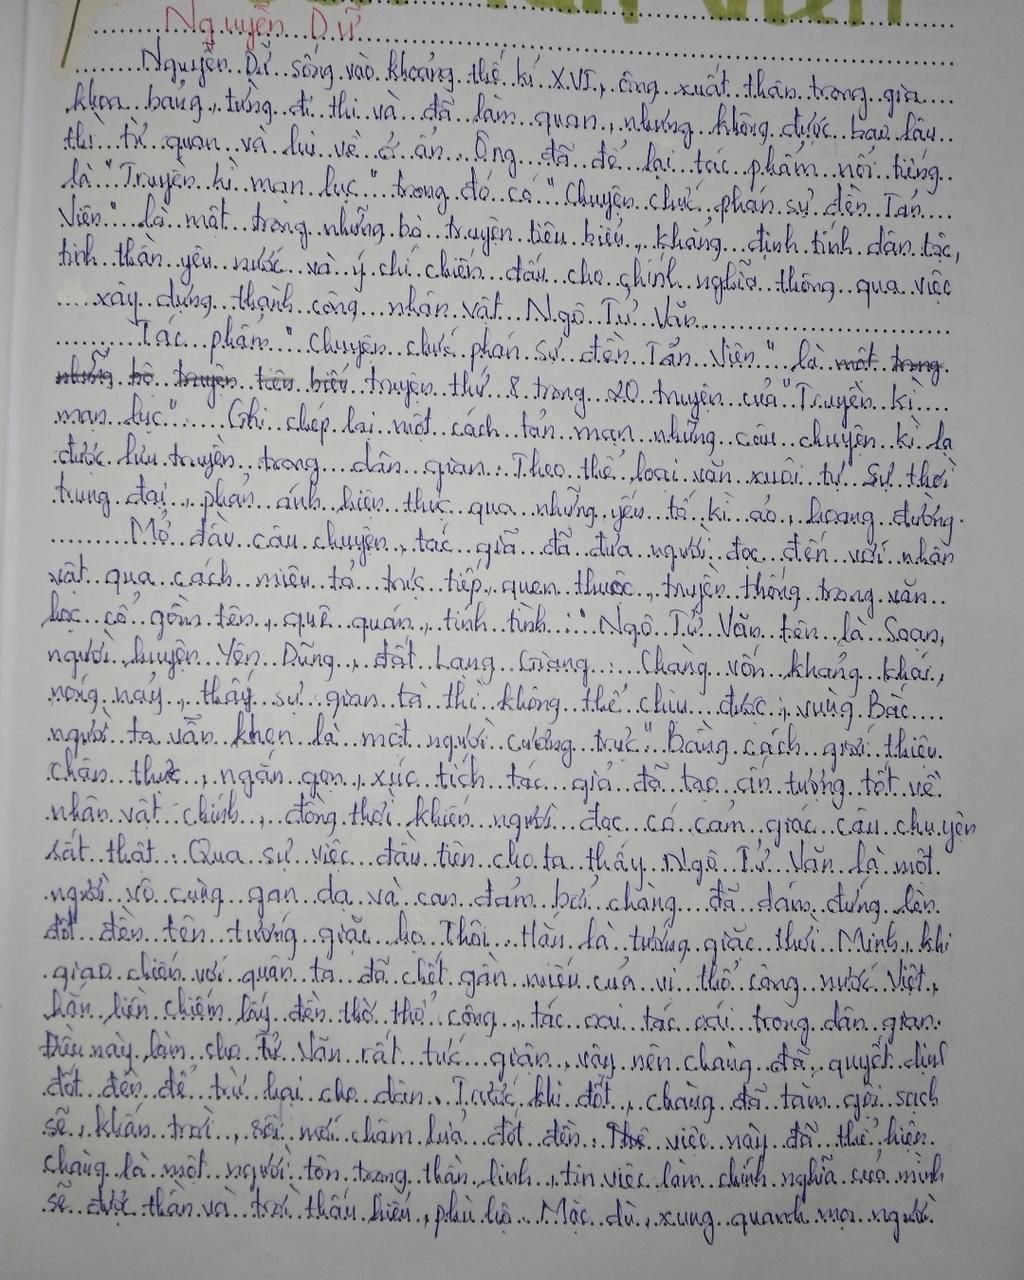 Nguyễn Dữ
Nguyễn Dữ sống vào khoảng thế kỉ XVI, ông xuất thân trong gia
khoa bảng, từng đi thi và đã làm quan, nhưng không được bao lâu
thì từ quan và lui về ở ẩn. Ông đã để lại tác phẩm nổi tiếng
là "Truyền kì mạn lục" trong đó có "Chuyện chức phán sự đền Tản
Viên" là một trong những bộ truyện tiêu biểu, khẳng định tính dân tộc,
tinh thần yêu nước và ý chí chiến đấu cho chính nghĩa thông qua việc
xây dựng thành công nhân vật Ngô Tử Văn.
Tác phẩm "Chuyện chức phán sự đền Tản Viên" là một trong
những bộ truyện tiêu biểu truyện thứ 8 trong 20 truyện của "Truyền kì
mạn lục". Ghi chép lại một cách tản mạn những câu chuyện kì lạ
được lưu truyền trong dân gian. Theo thể loại văn xuôi tự sự thời
trung đại, phản ánh hiện thực qua những yếu tố kì ảo, hoang đường.
Mở đầu câu chuyện, tác giả đã đưa người đọc đến với nhân
vật qua cách miêu tả trực tiếp, quen thuộc, truyền thống trong văn
học cổ gồm tên, quê quán, tính tình: "Ngô Tử Văn tên là Soạn,
người huyện Yên Dũng, đất Lạng Giang. Chàng vốn khảng khái,
nóng nảy, thấy sự gian tà thì không thể chịu được, vùng Bắc
người ta vẫn khen là một người cương trực". Bằng cách giới thiệu
chân thực, ngắn gọn, xúc tích tác giả đã tạo ấn tượng tốt về
nhân vật chính, đồng thời khiến người đọc có cảm giác câu chuyện
rất thật. Qua sự việc đầu tiên cho ta thấy Ngô Tử Văn là một
người vô cùng gan dạ và can đảm bởi chàng đã dám đứng lên
đốt đền tên tướng giặc họ Thôi. Hắn là tướng giặc thời Minh, khi
giao chiến với quân ta đã chết gần miếu của vị thổ công nước Việt,
hắn liền chiếm lấy đền thờ thổ công, tác oai tác oái trong dân gian.
Điều này làm cho Tử Văn rất tức giận, vậy nên chàng đã quyết định
đốt đền để trừ hại cho dân. Trước khi đốt, chàng đã tắm gội sạch
sẽ, khấn trời, rồi mới châm lửa đốt đền. việc này đã thể hiện
chàng là một người tôn trọng thần linh, tin việc làm chính nghĩa của mình
sẽ được thần và trời thấu hiểu, phù hộ. Mặc dù, xung quanh mọi người